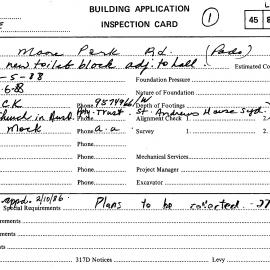 BUILDING APPLICATION
INSPECTION CARD
1
45
Moore Park Rd. (Padd)
new toilet block adj. to hall. Estimated Co
-5-88 Foundation Pressure
Nature of Foundation
C.K Phone Depth of Footings
Church in Aust. Pty Trust St. Andrews House Syd.
Phone Alignment Check 1.
Mock Phone a.a. Survey 1. 2.
Phone
Phone Mechanical Services
Phone Project Manager
Phone Excavator
appd. 2/10/86. Special Requirements Plans to be collected
rements
rements
317D Notices Levy